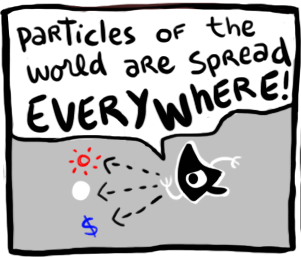 PARTicles OF the
world ARE SPREAD
EVERYWhERE!
$